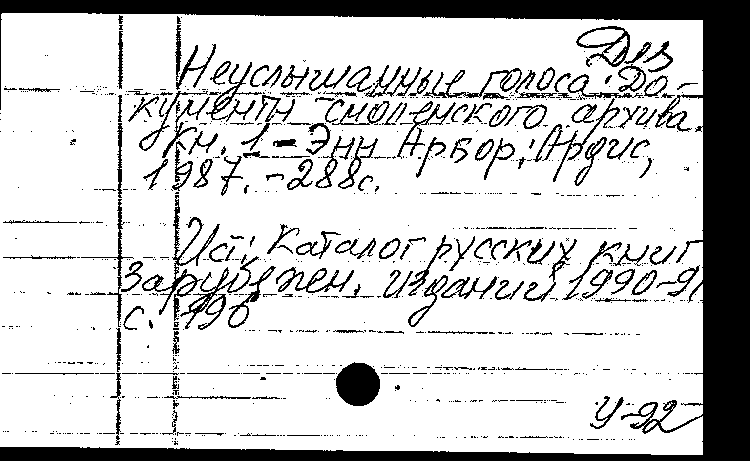 Диз
Неуслышанные голоса: До-
кументы смоленского архива.
Кн. 1 - Энн Арбор: Ардис,
1987. - 288с.
Ист: Каталог русских книг
зарубежн. изданий 1990-91
с. 196
У-92